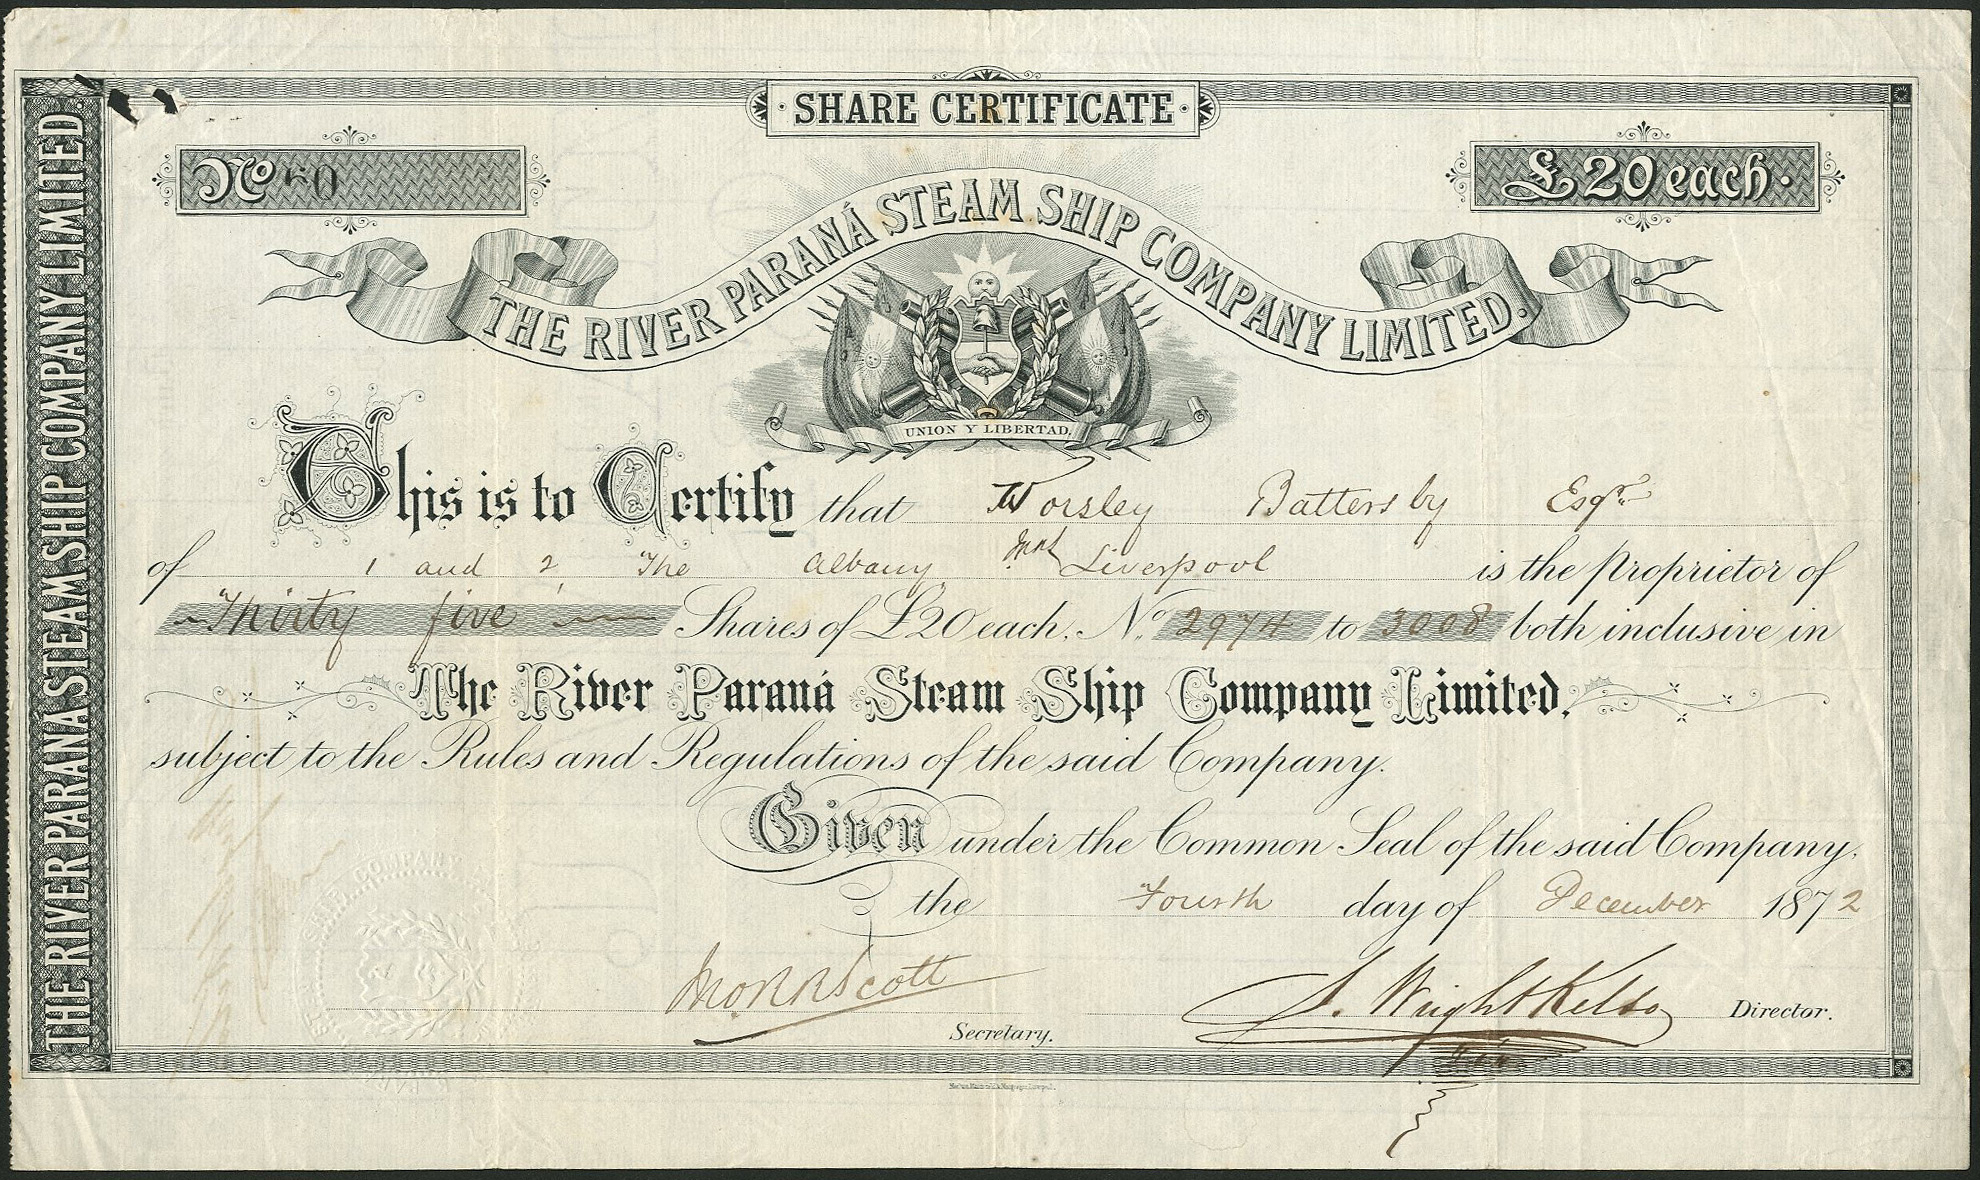 SHARE CERTIFICATE
No 50
£20 each.
THE RIVER PARANÁ STEAM SHIP COMPANY LIMITED.
UNION Y LIBERTAD.
This is to Certify that Worsley Battersby Esqre
of 1 and 2, The Albany, Liverpool is the proprietor of
Thirty five Shares of £20 each, No. 2974 to 3008 both inclusive in
The River Paraná Steam Ship Company Limited,
subject to the Rules and Regulations of the said Company.
Given under the Common Seal of the said Company,
the Fourth day of December 1872
Scott
Secretary.
S. Wright Kelso
Director.
THE RIVER PARANÁ STEAM SHIP COMPANY LIMITED.